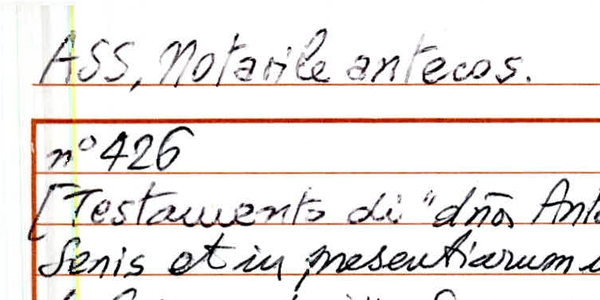 ASS, Notarile antecos.
n° 426
[Testamento di "dña Ant
Senis et in presentiarum